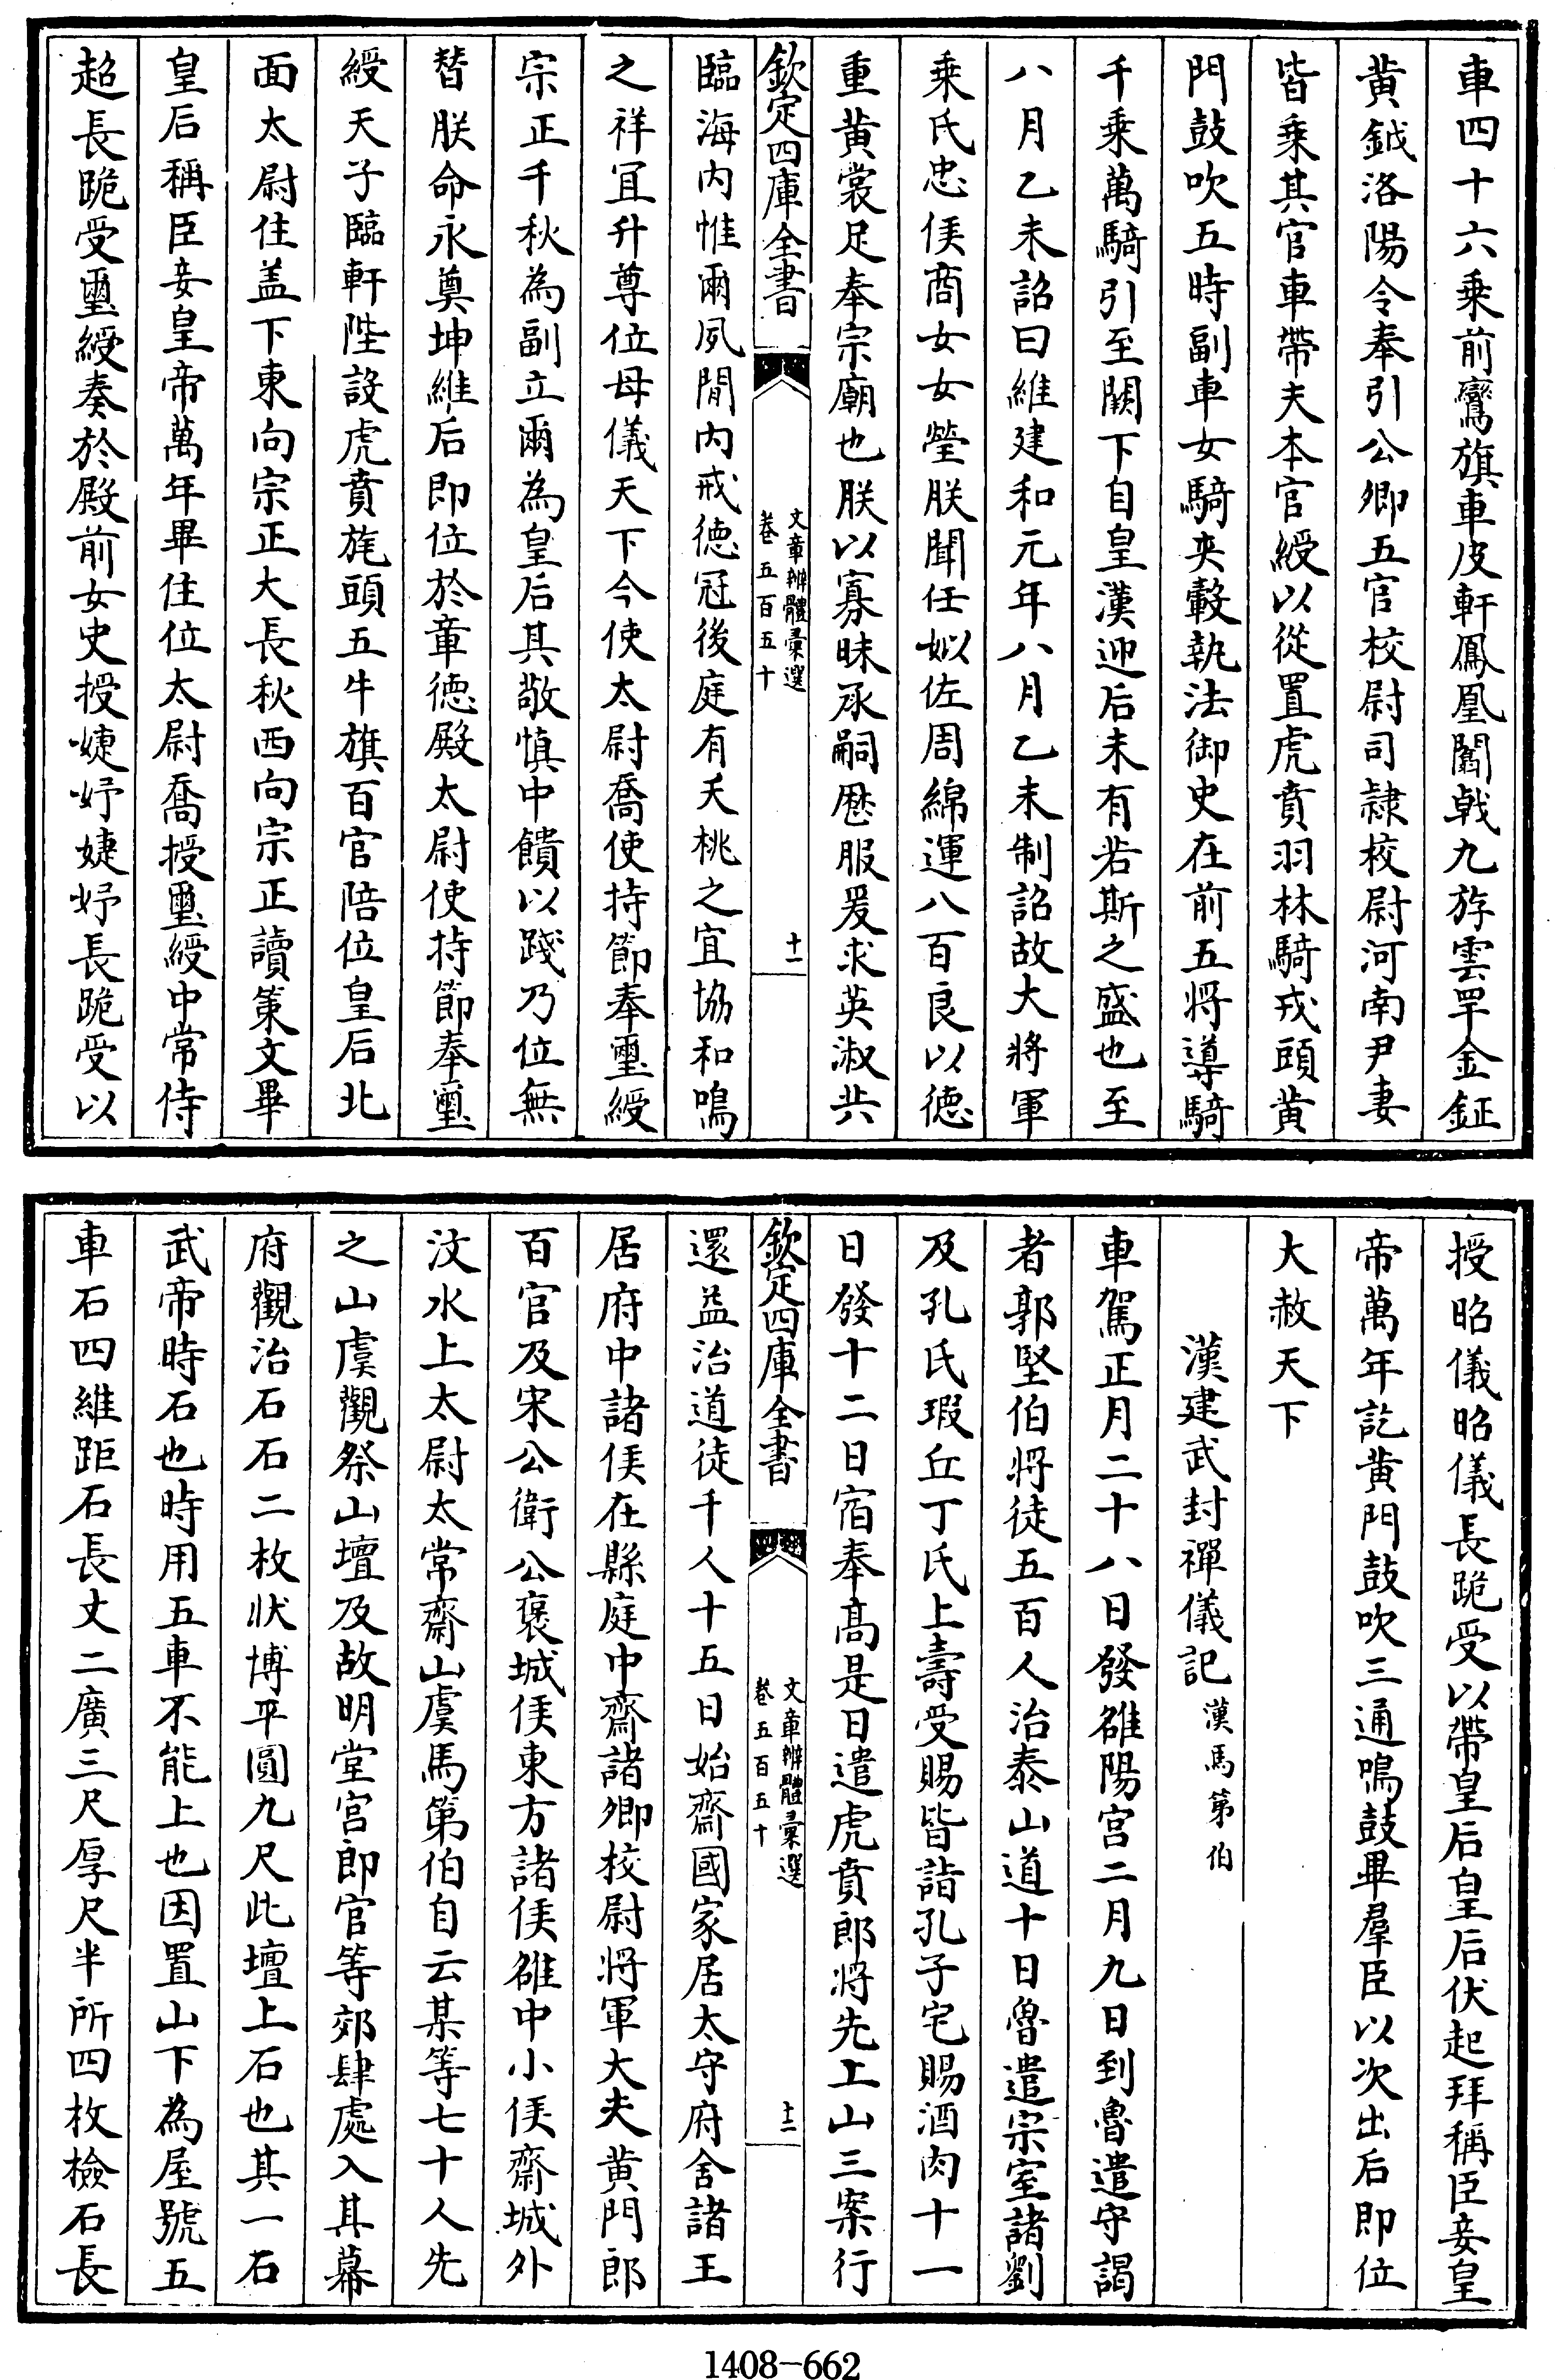 車四十六乘前鸞旗車皮軒鳳凰闟戟九斿雲罕金鉦
黄鉞洛陽令奉引公卿五官校尉司隸校尉河南尹妻
皆乗其官車帶夫本官綬以從置虎賁羽林騎戎頭黄
門鼓吹五時副車女騎夾轂執法御史在前五将導騎
千乗萬騎引至闕下自皇漢迎后未有若斯之盛也至
八月乙未詔曰維建和元年八月乙未制詔故大將軍
乗氏忠侯商女女瑩朕聞任姒佐周綿運八百良以徳
重黄裳足奉宗廟也朕以寡昧承嗣歴服爰求英淑共
欽定四庫全書
文章辨體彚選
卷五百五十
十一
臨海内惟爾夙閒内戒徳冠後庭有夭桃之宜協和鳴
之祥冝升尊位母儀天下今使太尉喬使持節奉璽綬
宗正千秋為副立爾為皇后其敬慎中饋以踐乃位無
替朕命永奠坤維后即位於章徳殿太尉使持節奉璽
綬天子臨軒陛設虎賁旄頭五牛旗百官陪位皇后北
面太尉住盖下東向宗正大長秋西向宗正讀策文畢
皇后稱臣妾皇帝萬年畢住位太尉喬授璽綬中常侍
超長跪受璽綬奏於殿前女史授婕妤婕妤長跪受以
授昭儀昭儀長跪受以帶皇后皇后伏起拜稱臣妾皇
帝萬年訖黄門鼓吹三通鳴鼓畢羣臣以次出后即位
大赦天下
漢建武封禪儀記 漢馬第伯
車駕正月二十八日發雒陽宫二月九日到魯遣守謁
者郭堅伯將徒五百人治泰山道十日魯遣宗室諸劉
及孔氏瑕丘丁氏上壽受賜皆詣孔子宅賜酒肉十一
日發十二日宿奉髙是日遣虎賁郎將先上山三案行
欽定四庫全書
文章辨體彚選
卷五百五十
十二
還益治道徒千人十五日始齋國家居太守府舍諸王
居府中諸侯在縣庭中齋諸卿校尉將軍大夫黄門郎
百官及宋公衛公褒城侯東方諸侯雒中小侯齋城外
汶水上太尉太常齋山虞馬第伯自云某等七十人先
之山虞觀祭山壇及故明堂宫郎官等郊肆處入其幕
府觀治石石二枚狀博平圓九尺此壇上石也其一石
武帝時石也時用五車不能上也因置山下為屋號五
車石四維距石長丈二廣三尺厚尺半所四枚檢石長
1408-662